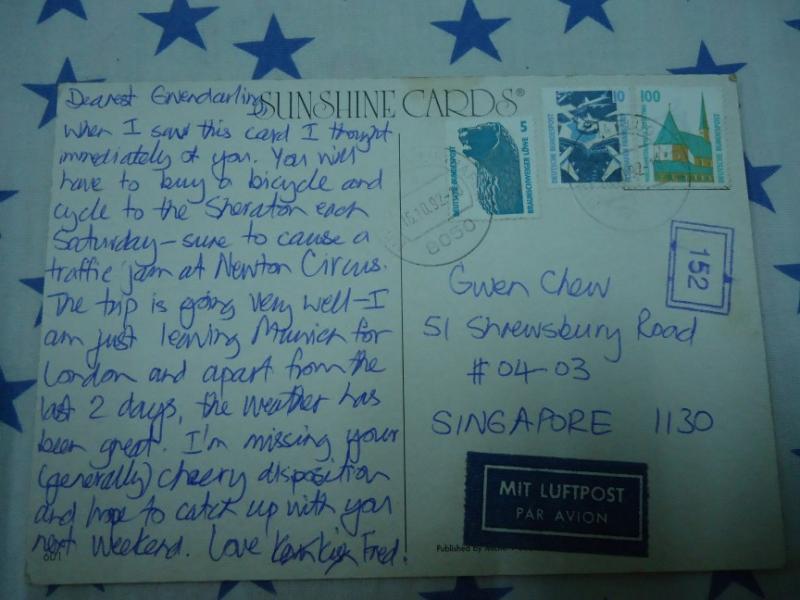 SUNSHINE CARDS®
Dearest Gwendarling
When I saw this card I thought
immediately of you. You will
have to buy a bicycle and
cycle to the Sheraton each
Saturday - sure to cause a
traffic jam at Newton Circus.
The trip is going very well - I
am just leaving Munich for
London and apart from the
last 2 days, the weather has
been great. I'm missing your
(generally) cheery disposition
and hope to catch up with you
next weekend. Love Fred!
601
5
DEUTSCHE BUNDESPOST
BRAUNSCHWEIGER LÖWE
10
DEUTSCHE BUNDESPOST
100
DEUTSCHE BUNDESPOST
16.10.92
8050
152
Gwen Chew
51 Shrewsbury Road
#04-03
SINGAPORE 1130
MIT LUFTPOST
PAR AVION
Published by